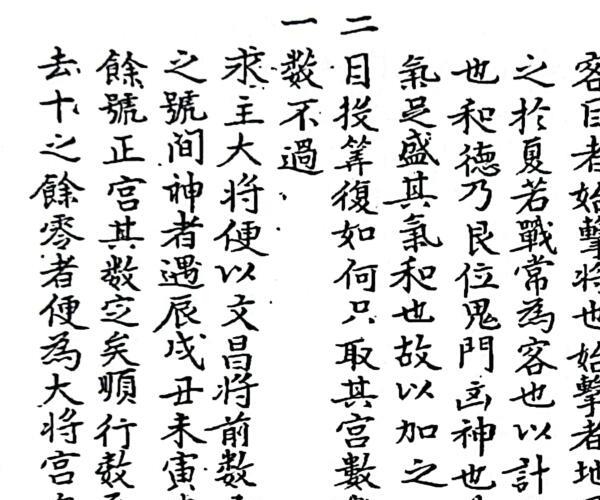 客目者始擊將也始擊者地
之於夏若戰常為客也以計
也和德乃艮位鬼門凶神也
氣足盛其氣和也故以加之
二目投筭復如何只取其宮數
一數不過
求主大將便以文昌將前數
之號間神者遇辰戌丑未寅
餘號正宮其数定矣順行数
去十之餘零者便為大將宮